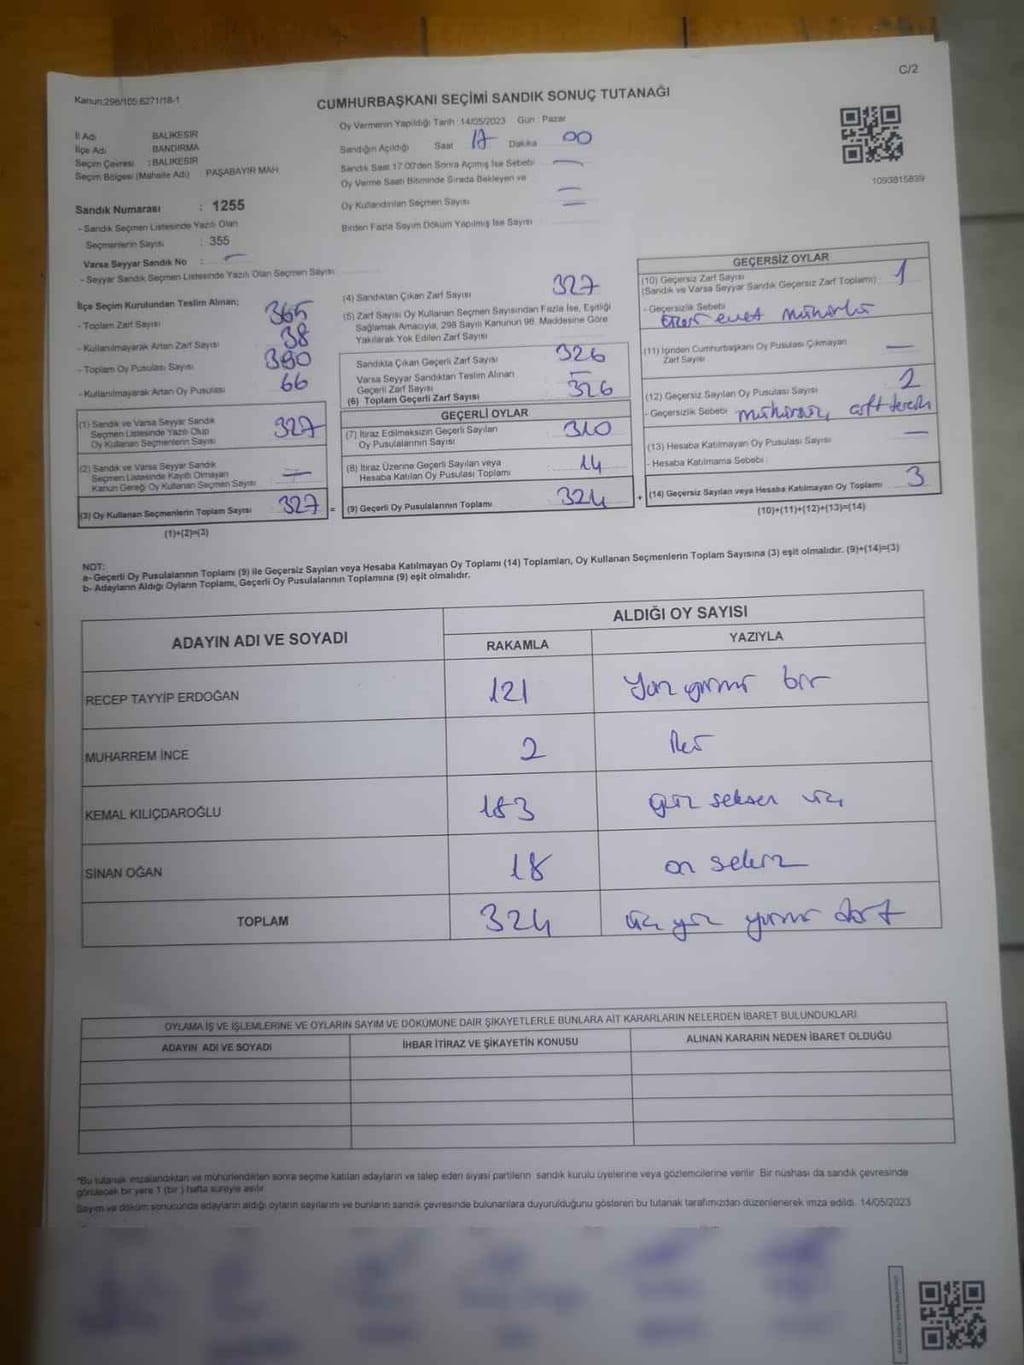 C/2
Kanun:298/105:6271/18-1
CUMHURBAŞKANI SEÇİMİ SANDIK SONUÇ TUTANAĞI
Oy Vermenin Yapıldığı Tarih : 14/05/2023 Gün : Pazar
İl Adı BALIKESİR
İlçe Adı BANDIRMA
Seçim Çevresi : BALIKESİR
Seçim Bölgesi (Mahalle Adı) PAŞABAYIR MAH
Sandığın Açıldığı Saat 17 Dakika 00
Sandık Saat 17.00'den Sonra Açılmış İse Sebebi —
Oy Verme Saati Bitiminde Sırada Bekleyen ve
Oy Kullandırılan Seçmen Sayısı
Birden Fazla Sayım Döküm Yapılmış İse Sayısı
1093815839
Sandık Numarası : 1255
- Sandık Seçmen Listesinde Yazılı Olan
Seçmenlerin Sayısı : 355
Varsa Seyyar Sandık No : —
- Seyyar Sandık Seçmen Listesinde Yazılı Olan Seçmen Sayısı
İlçe Seçim Kurulundan Teslim Alınan;
- Toplam Zarf Sayısı 365
- Kullanılmayarak Artan Zarf Sayısı 38
- Toplam Oy Pusulası Sayısı 390
- Kullanılmayarak Artan Oy Pusulası 66
(1) Sandık ve Varsa Seyyar Sandık
Seçmen Listesinde Yazılı Olup
Oy Kullanan Seçmenlerin Sayısı 327
(2) Sandık ve Varsa Seyyar Sandık
Seçmen Listesinde Kayıtlı Olmayan
Kanun Gereği Oy Kullanan Seçmen Sayısı —
(3) Oy Kullanan Seçmenlerin Toplam Sayısı 327 =
(1)+(2)=(3)
(4) Sandıktan Çıkan Zarf Sayısı 327
(5) Zarf Sayısı Oy Kullanan Seçmen Sayısından Fazla İse, Eşitliği
Sağlamak Amacıyla, 298 Sayılı Kanunun 98. Maddesine Göre
Yakılarak Yok Edilen Zarf Sayısı
Sandıkta Çıkan Geçerli Zarf Sayısı 326
Varsa Seyyar Sandıktan Teslim Alınan
Geçerli Zarf Sayısı —
(6) Toplam Geçerli Zarf Sayısı 326
GEÇERLİ OYLAR
(7) İtiraz Edilmeksizin Geçerli Sayılan
Oy Pusulalarının Sayısı 310
(8) İtiraz Üzerine Geçerli Sayılan veya
Hesaba Katılan Oy Pusulası Toplamı 14
(9) Geçerli Oy Pusulalarının Toplamı 324 +
GEÇERSİZ OYLAR
(10) Geçersiz Zarf Sayısı
(Sandık ve Varsa Seyyar Sandık Geçersiz Zarf Toplamı) 1
- Geçersizlik Sebebi
evet mühürlü
(11) İçinden Cumhurbaşkanı Oy Pusulası Çıkmayan
Zarf Sayısı —
(12) Geçersiz Sayılan Oy Pusulası Sayısı 2
- Geçersizlik Sebebi mühürsüz, çift tercih
(13) Hesaba Katılmayan Oy Pusulası Sayısı —
- Hesaba Katılmama Sebebi :
(14) Geçersiz Sayılan veya Hesaba Katılmayan Oy Toplamı 3
(10)+(11)+(12)+(13)=(14)
NOT:
a- Geçerli Oy Pusulalarının Toplamı (9) ile Geçersiz Sayılan veya Hesaba Katılmayan Oy Toplamı (14) Toplamları, Oy Kullanan Seçmenlerin Toplam Sayısına (3) eşit olmalıdır. (9)+(14)=(3)
b- Adayların Aldığı Oyların Toplamı, Geçerli Oy Pusulalarının Toplamına (9) eşit olmalıdır.
ADAYIN ADI VE SOYADI ALDIĞI OY SAYISI
RAKAMLA YAZIYLA
RECEP TAYYİP ERDOĞAN 121 Yüz yirmi bir
MUHARREM İNCE 2 İki
KEMAL KILIÇDAROĞLU 183 yüz seksen üç
SİNAN OĞAN 18 on sekiz
TOPLAM 324 üç yüz yirmi dört
OYLAMA İŞ VE İŞLEMLERİNE VE OYLARIN SAYIM VE DÖKÜMÜNE DAİR ŞİKAYETLERLE BUNLARA AİT KARARLARIN NELERDEN İBARET BULUNDUKLARI
ADAYIN ADI VE SOYADI İHBAR İTİRAZ VE ŞİKAYETİN KONUSU ALINAN KARARIN NEDEN İBARET OLDUĞU
*Bu tutanak imzalandıktan ve mühürlendikten sonra seçime katılan adayların ve talep eden siyasi partilerin sandık kurulu üyelerine veya gözlemcilerine verilir. Bir nüshası da sandık çevresinde
görülecek bir yere 1 (bir ) hafta süreyle asılır.
Sayım ve döküm sonucunda adayların aldığı oyların sayılarını ve bunların sandık çevresinde bulunanlara duyurulduğunu gösteren bu tutanak tarafımızdan düzenlenerek imza edildi. 14/05/2023